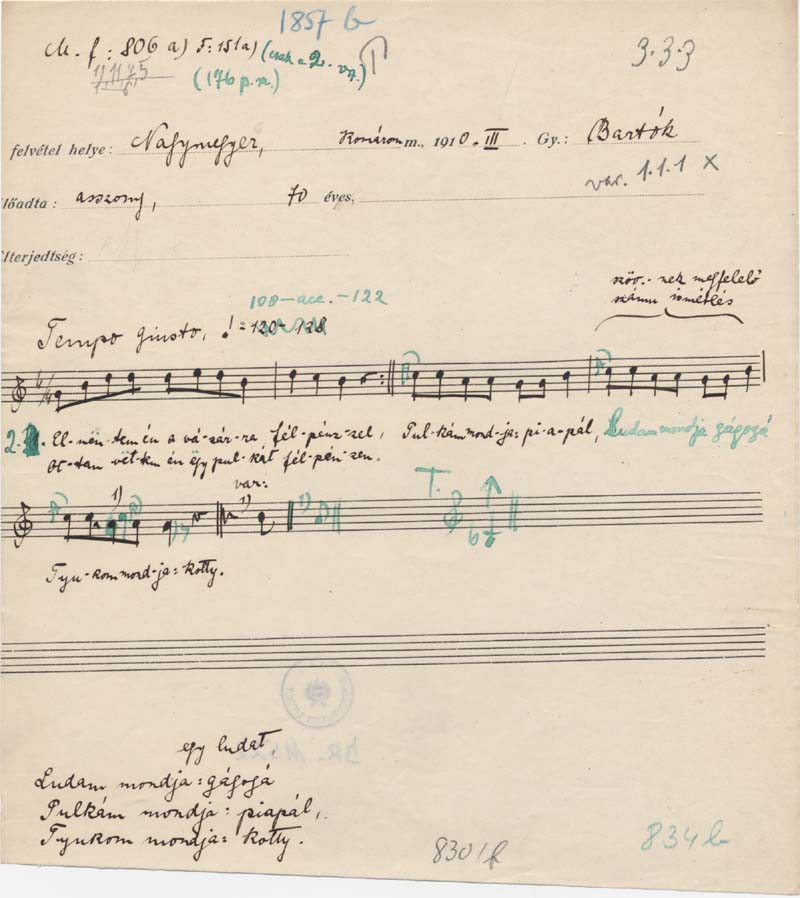 1857 b
M. f: 806 a) F: 151a) (csak a 2. vsz.)
(176 p.m.)
3.3.3
felvétel helye: Nagymegyer, Komárom m., 1910. III. Gy.: Bartók
var. 1.1.1 x
lőadta: asszony, 70 éves,
lterjedtség:
szöv.-nek megfelelő
számú ismétlés
108-acc.-122
Tempo giusto, = 120-128
2. El-men-tem én a vá-sár-ra, fél-pénz-zel, Pul-kám mond-ja: pi-a-pál, Ludam mondja gágogá
Ot-tan vet-tem én egy pul-kát fél-pén-zen.
1) var: 1) 1)
T.
Tyu-kom mond-ja: kotty.
egy ludat,
Ludam mondja: gágogá
Pulkám mondja: piapál,
Tyukom mondja: kotty.
8301f
834 b